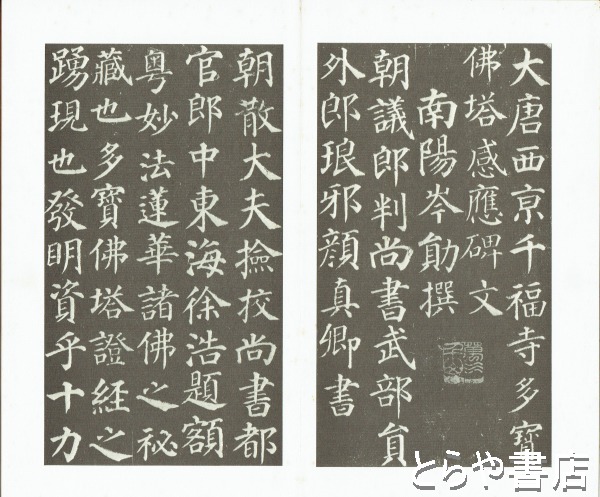 大唐西亰千福寺多寶
佛塔感應碑文
南陽岑勛撰
朝議郎判尚書武部貟
外郎琅邪顔真卿書
朝散大夫撿挍尚書都
官郎中東海徐浩題額
粤妙法蓮華諸佛之秘
藏也多寶佛塔證經之
踴現也發明資乎十力
とらや書店